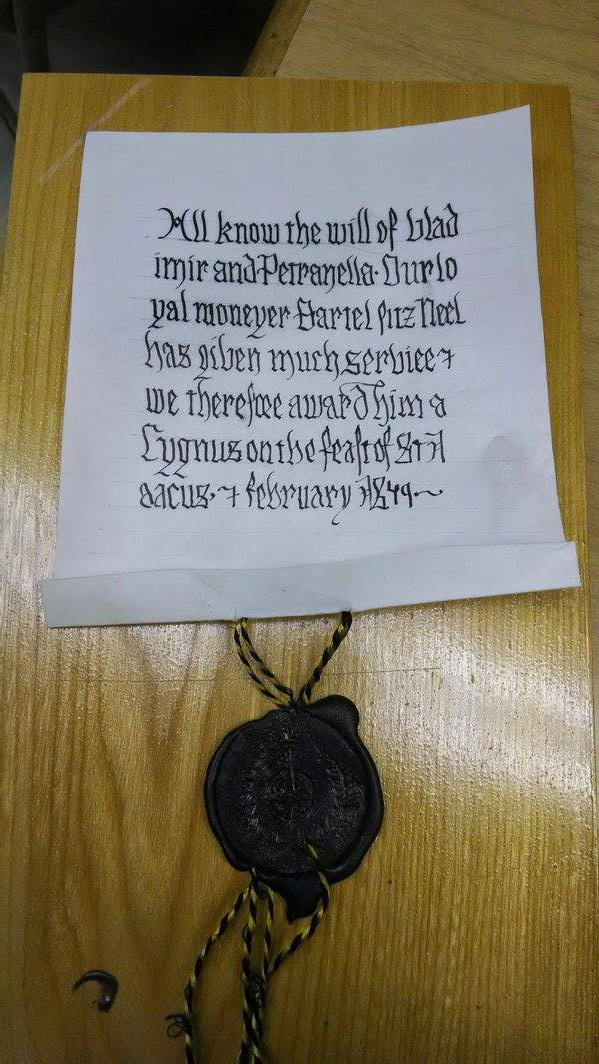 All know the will of Vlad
imir and Petranella. Our lo
yal moneyer Bartel fitz Neel
has given much service ⁊
we therefore award him a
Cygnus on the feast of St Fi
acus. ⁊ february